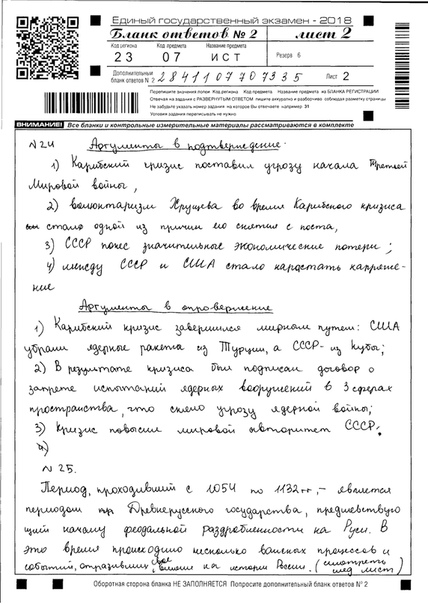 Единый государственный экзамен - 2018
Бланк ответов № 2 лист 2
Код региона Код предмета Название предмета
23 07 ИСТ Резерв 6
Дополнительный
бланк ответов № 2 Лист 2
Перепишите значения полей Код региона Код предмета Название предмета из БЛАНКА РЕГИСТРАЦИИ
Отвечая на задания с РАЗВЕРНУТЫМ ОТВЕТОМ пишите аккуратно и разборчиво соблюдая разметку страницы
Не забудьте указать номер задания на которое Вы отвечаете например 31
Условия задания переписывать не нужно.
ВНИМАНИЕ! Все бланки и контрольные измерительные материалы рассматриваются в комплекте
№ 24 Аргументы в подтверждение:
1) Карибский кризис поставил угрозу начала Третьей
Мировой войны,
2) волюнтаризм Хрущева во время Карибского кризиса
стало одной из причин его снятия с поста,
3) СССР понес значительные экономические потери;
4) между СССР и США стало нарастать напряже-
ние
Аргументы в опровержение
1) Карибский кризис завершился мирным путем: США
убрали ядерные ракеты из Турции, а СССР - из Кубы;
2) В результате кризиса был подписан договор о
запрете испытаний ядерных вооружений в 3 сферах
пространства, что сняло угрозу ядерной войны;
3) Кризис повысил мировой авторитет СССР.
4)
№ 25.
Период, проходивший с 1054 по 1132 гг, - является
периодом Древнерусского государства, предшествую
щий началу феодальной раздробленности на Руси. В
это время происходило несколько важных процессов и
событий, отразивших свое влияние на истории России. (смотреть
след лист)
Оборотная сторона бланка НЕ ЗАПОЛНЯЕТСЯ Попросите дополнительный бланк ответов № 2